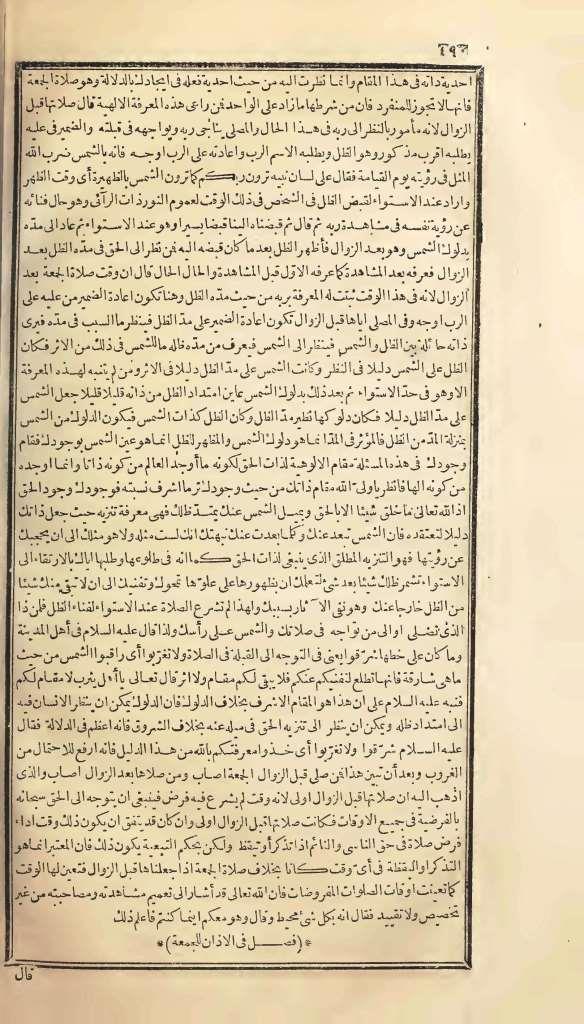 احدية ذاته فى هذا المقام وانما نظرت اليه من حيث احدية فعله فى ايجادك بالدلالة وهو صلاة الجمعة
فانها لا تجوز للمنفرد فان من شرطها ما زاد على الواحد فن راعى هذه المعرفة الالهية قال صلاتها قبل
الزوال لانه مأمور بالنظر الى ربه فى هذا الحال والمصلى يناجى ربه ويواجهه فى قبلته والضمير فى عليه
يطلبه اقرب مذكور وهو الظل ويطلبه الاسم الرب واعادته على الرب اوجه فانه بالشمس ضرب الله
المثل فى رؤيته يوم القيامة فقال على لسان نبيه ترون ربكم كما ترون الشمس بالظهيرة أى وقت الظهر
واراد عند الاستواء لقبض الظل فى الشخص فى ذلك الوقت لعموم النور ذات الرآئى وهو حال فنائه
عن رؤية نفسه فى مشاهدة ربه ثم قال ثم قبضناه الينا قبضا يسيرا وهو عند الاستواء ثم عاد الى مدّه
بدلوك الشمس وهو بعد الزوال فأظهر الظل بعد ما كان قبضه اليه فن نظر الى الحق فى مدّه الظل بعد
الزوال فعرفه بعد المشاهدة كما عرفه الاوّل قبل المشاهدة والحال الحال قال ان وقت صلاة الجمعة بعد
الزوال لانه فى هذا الوقت ثبتت له المعرفة بربه من حيث مدّه الظل وهنا تكون اعادة الضمير من عليه على
الرب اوجه وفى المصلى اياها قبل الزوال تكون اعادة الضمير على مدّ الظل فينظر ما السبب فى مدّه فيرى
ذاته حائلة بين الظل والشمس فينظر الى الشمس فيعرف من مدّه ظله ما للشمس فى ذلك من الاثر فكان
الظل على الشمس دليلا فى النظر وكانت الشمس على مدّ الظل دليلا فى الاثر ومن لم يتنبه لهذه المعرفة
الا وهو فى حدّ الاستواء ثم بعد ذلك بدلوك الشمس عاين امتداد الظل من ذاته قليلا قليلا جعل الشمس
على مدّ الظل دليلا فكان دلوكها نظير مدّ الظل وكان الظل كذات الشمس فيكون الدلوك من الشمس
بمنزلة المدّ من الظل فالمؤثر فى المدّ انما هو دلوك الشمس والمظهر للظل انما هو عين الشمس بوجودك فقام
وجودك فى هذه المسئلة مقام الالوهية لذات الحق لكونه ما أوجد العالم من كونه ذاتا وانما اوجده
من كونه الها فانظر يا ولى الله مقام ذاتك من حيث وجودك تر ما اشرف نسبته فوجودك وجود الحق
اذ الله تعالى ما خلق شيئا الا بالحق وبميل الشمس عنك يمتد ظلك فهى معرفة تنزيه حيث جعل ذاتك
دليلا لتعتقده فان الشمس تبعد عنك وكلما بعدت عنك نبهتك انك لست مثله ولا هو مثلك الى ان يحجبك
عن رؤيتها فهو التنزيه المطلق الذى ينبغى لذات الحق كما انه فى طلوعها وطلبها اياك بالارتقاء الى
الاستواء تشمر ظلك شيئا بعد شئ لتعلمك ان بظهورها على علوّها تمحوك وتفنيك الى ان لا تبقى منك شيئا
من الظل خارجا عنك وهو نفى الآثار بسببك ولهذا لم تشرع الصلاة عند الاستواء لفناء الظل فلمن ذا
الذى تصلى او الى من تواجه فى صلاتك والشمس على رأسك ولذا قال عليه السلام فى أهل المدينة
وما كان على خطها شرّقوا يعنى فى التوجه الى القبلة فى الصلاة ولا تغرّبوا أى راقبوا الشمس من حيث
ما هى شارقة فانها تطلع لتفنيكم عنكم فلا يبقى لكم مقام ولا اثر قال تعالى يا أهل يثرب لا مقام لكم
فنبه عليه السلام على ان هذا هو المقام الاشرف بخلاف الدلوك فان الدلوك يمكن ان ينظر الانسان فيه
الى امتداد ظله ويمكن ان ينظر الى تنزيه الحق فى ميله عنه بخلاف الشروق فانه اعظم فى الدلالة فقال
عليه السلام شرّقوا ولا تغرّبوا أى خذوا معرفتكم بالله من هذا الدليل فانه ارفع للاحتمال من
الغروب وبعد أن تبين هذا فن صلى قبل الزوال الجمعة اصاب ومن صلاها بعد الزوال اصاب والذى
اذهب اليه ان صلاتها قبل الزوال اولى لانه وقت لم يشرع فيه فرض فينبغى ان يتوجه الى الحق سبحانه
بالفرضية فى جميع الاوقات فكانت صلاتها قبل الزوال اولى وان كان قد يتفق ان يكون ذلك وقت اداء
فرض صلاة فى حق الناسى والنائم اذا تذكر أو تيقظ ولكن بحكم التبعية يكون ذلك فان المعتبر انما هو
التذكر واليقظة فى أى وقت كانا بخلاف صلاة الجمعة اذا جعلناها قبل الزوال فتعين لها الوقت
كما تعينت اوقات الصلوات المفروضات فان الله تعالى قد أشار الى تعميم مشاهدته ومصاحبته من غير
تخصيص ولا تقييد فقال انه بكل شئ محيط وقال وهو معكم اينما كنتم فاعلم ذلك
*(فصل فى الاذان للجمعة)*
قال